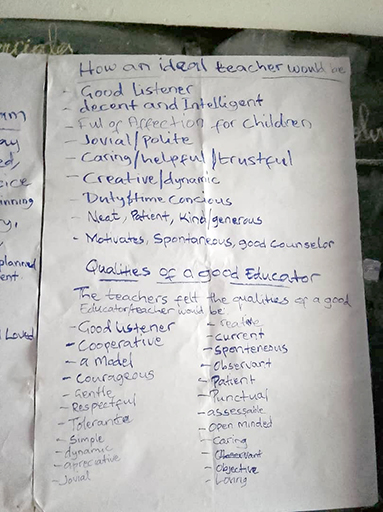 How an ideal teacher would be
- Good listener
- decent and Intelligent
- Ful of Affection for Children
- Jovial/polite
- Caring/helpful/trustful
- Creative/dynamic
- Duty&time Concious
- Neat, Patient, Kind, generous
- Motivates, Spontaneous, good Counselor
Qualities of a good Educator
The teachers felt the qualities of a good
Educator/teacher would be:
- Good listener
- Cooperative
- a Model
- Courageous
- Gentle
- Respectful
- Tolerante
- Simple
- dynamic
- apreciative
- Jovial
- Current
- Sponteneous
- Observant
- Patient
- Punctual
- assessable
- Open minded
- Caring
- Observant
- Objective
- Loving
am
ay
ed,
oice
anning
y,
planned
ent
d Loved